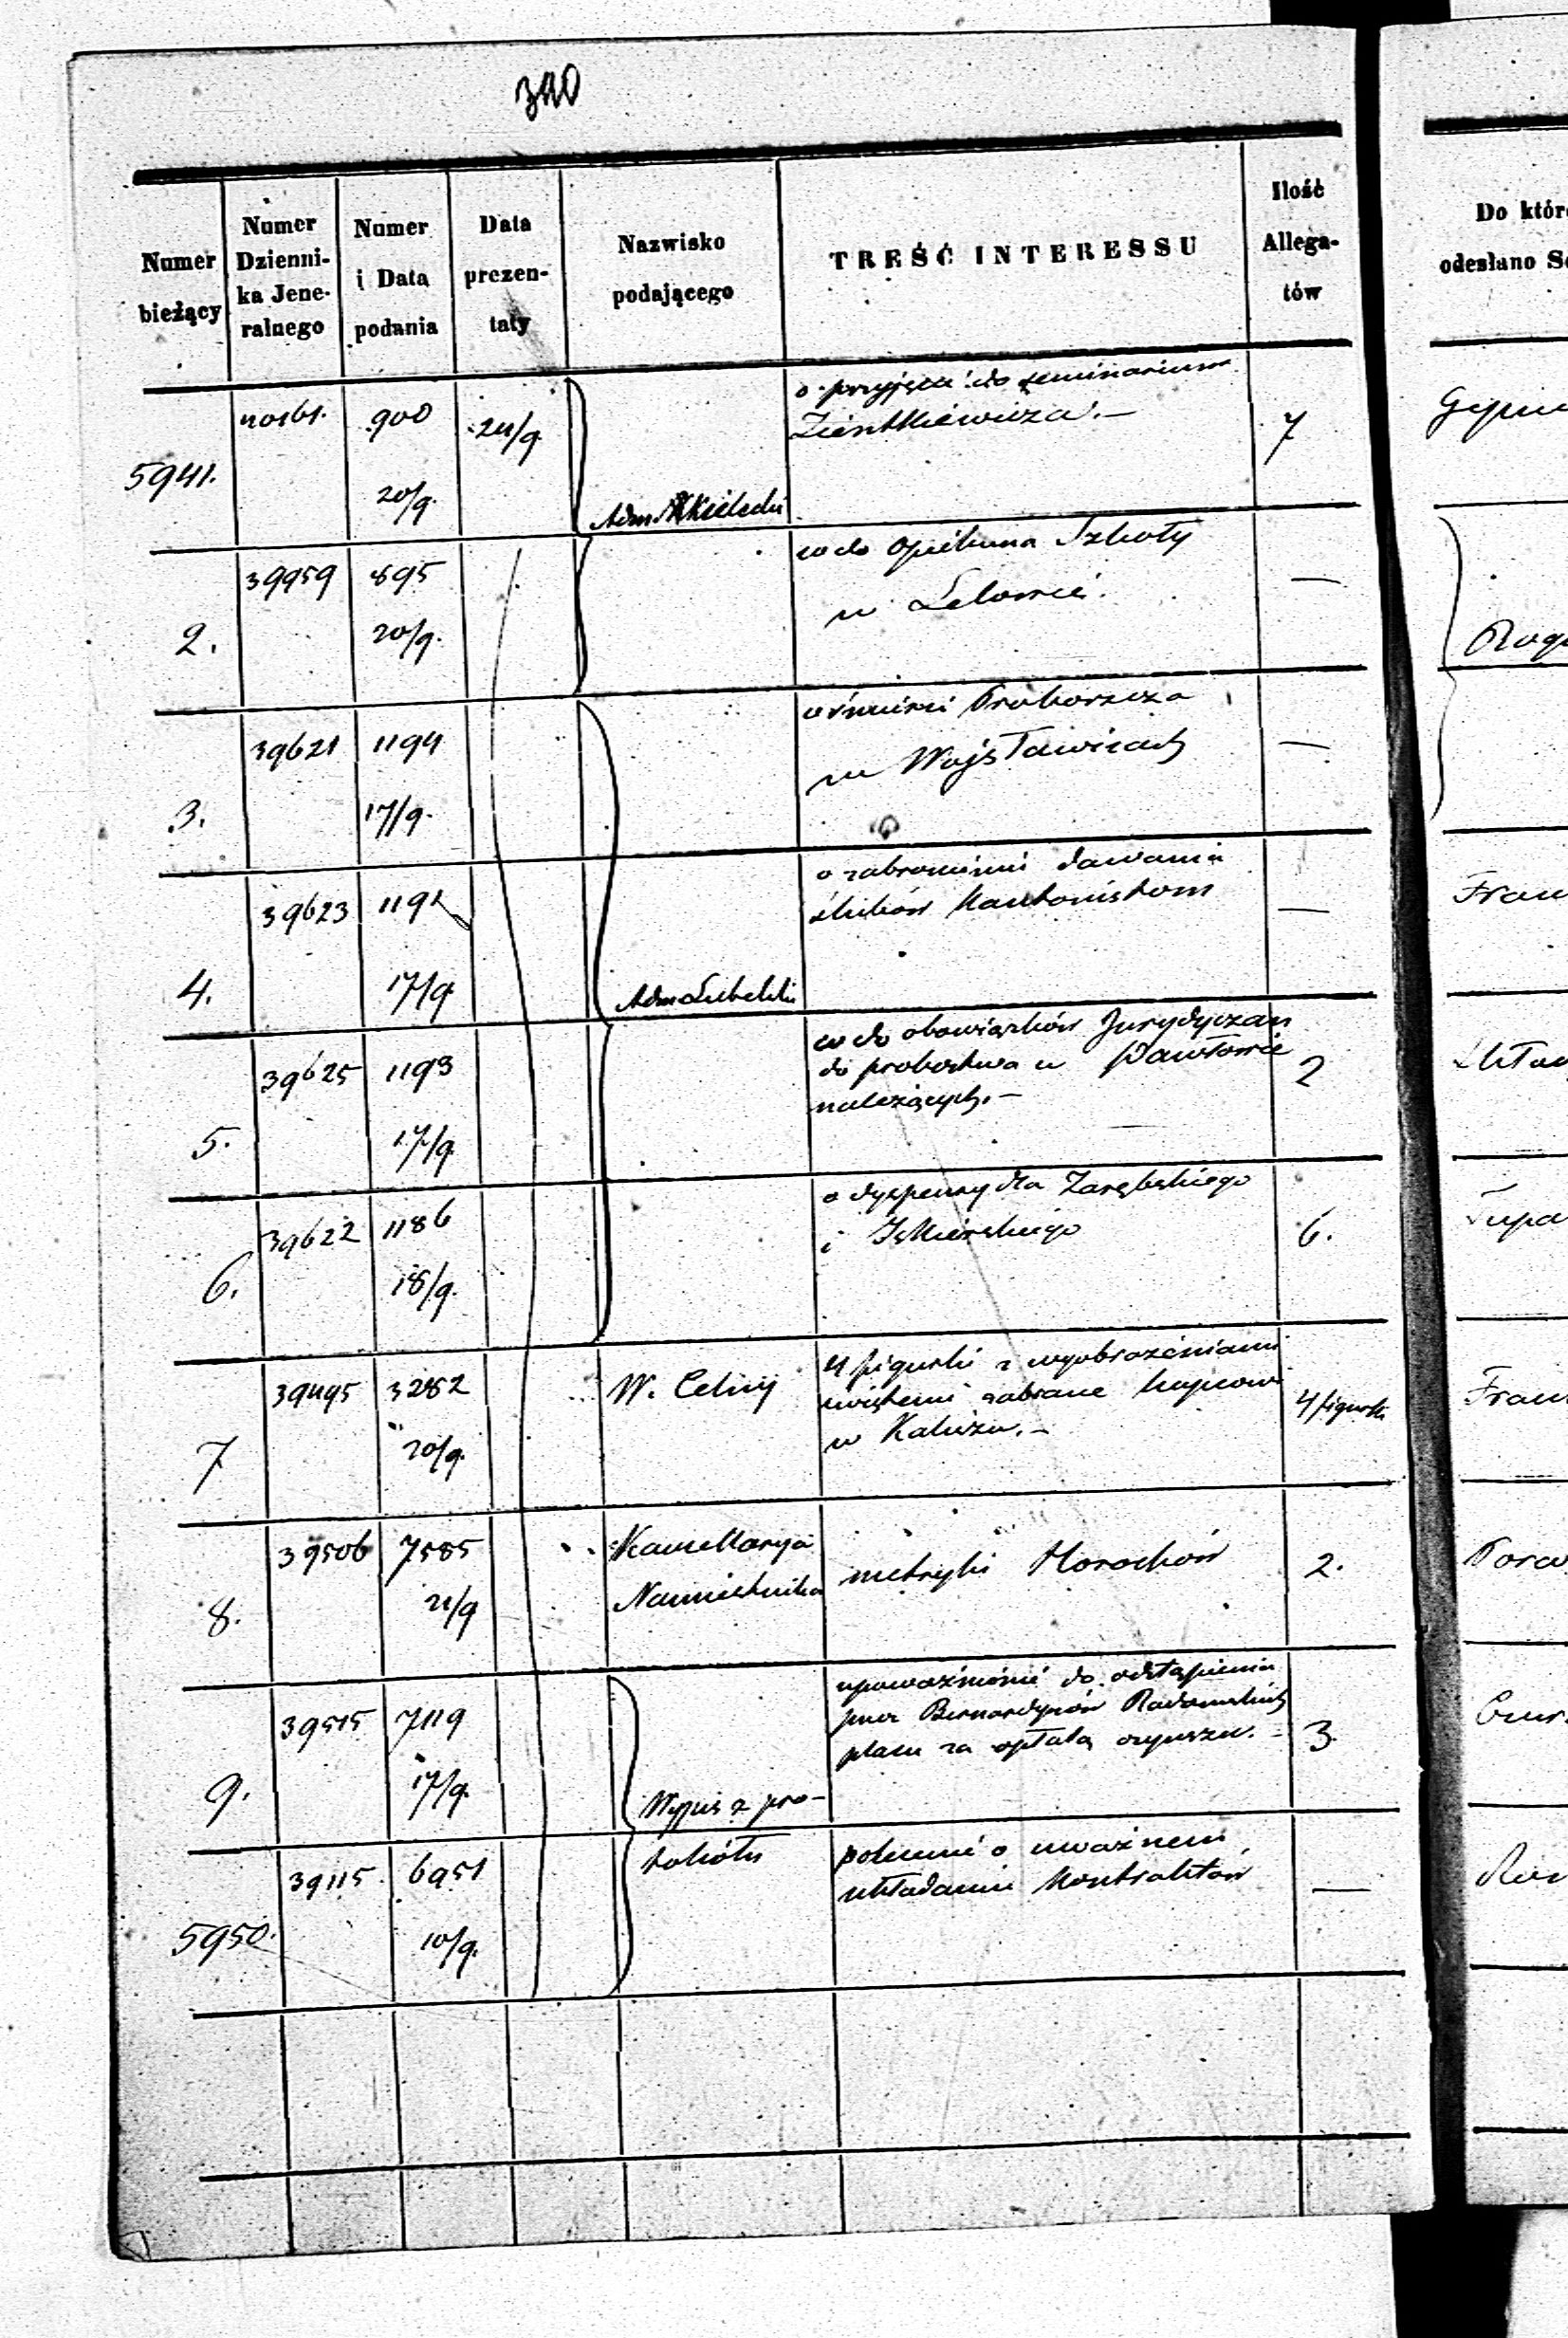 340
Numer bieżący
Numer Dzienni-
ka Jene-
ralnego
Numer
i Data
podania
Data
prezen-
taty
Nazwisko
podającego
TREŚĆ INTERESSU
Ilość
Allega-
tów
Do któr
odesłano Se
5941.
40161.
900
20/9.
24/9.
Adm. Kielecki
o przyjęcie do seminarium
Zientkiewicza. —
7
2.
39959
895
20/9.
co do opiekuna Szkoły
w Lelowie.
—
Rogo
3.
39621
1194
17/9.
o śmierci Proboszcza
w Wojsławicach
—
4.
39623
1192
17/9.
Adm Lubelski
o zabronieniu dawania
ślubów Kantonistom
—
Fran
5.
39625
1193
17/9.
co do obowiązków Jurydyczan
do probostwa w Pawłowie
należących. —
2
6.
39622
1186
18/9.
o dyspensy dla Zarębskiego
i
6.
7
39495
3282
20/9.
W. Celny
4 figurki z wyobrażeniami
świętemi zabrane kupcowi
w Kaliszu. —
4 figurki
Fran
8.
39506
7585
21/9
Kancellarya
Namiestnika
metryki Horochów
2.
9.
39515
7119
17/9.
Wypis z pro-
tokółu
upoważnienie do odstąpienia
przez Bernardynów Radomskich
placu za opłatą czynszu. —
3.
5950.
39115
6951
10/9.
polecenie o uważnem
układaniu Kontraktów
—